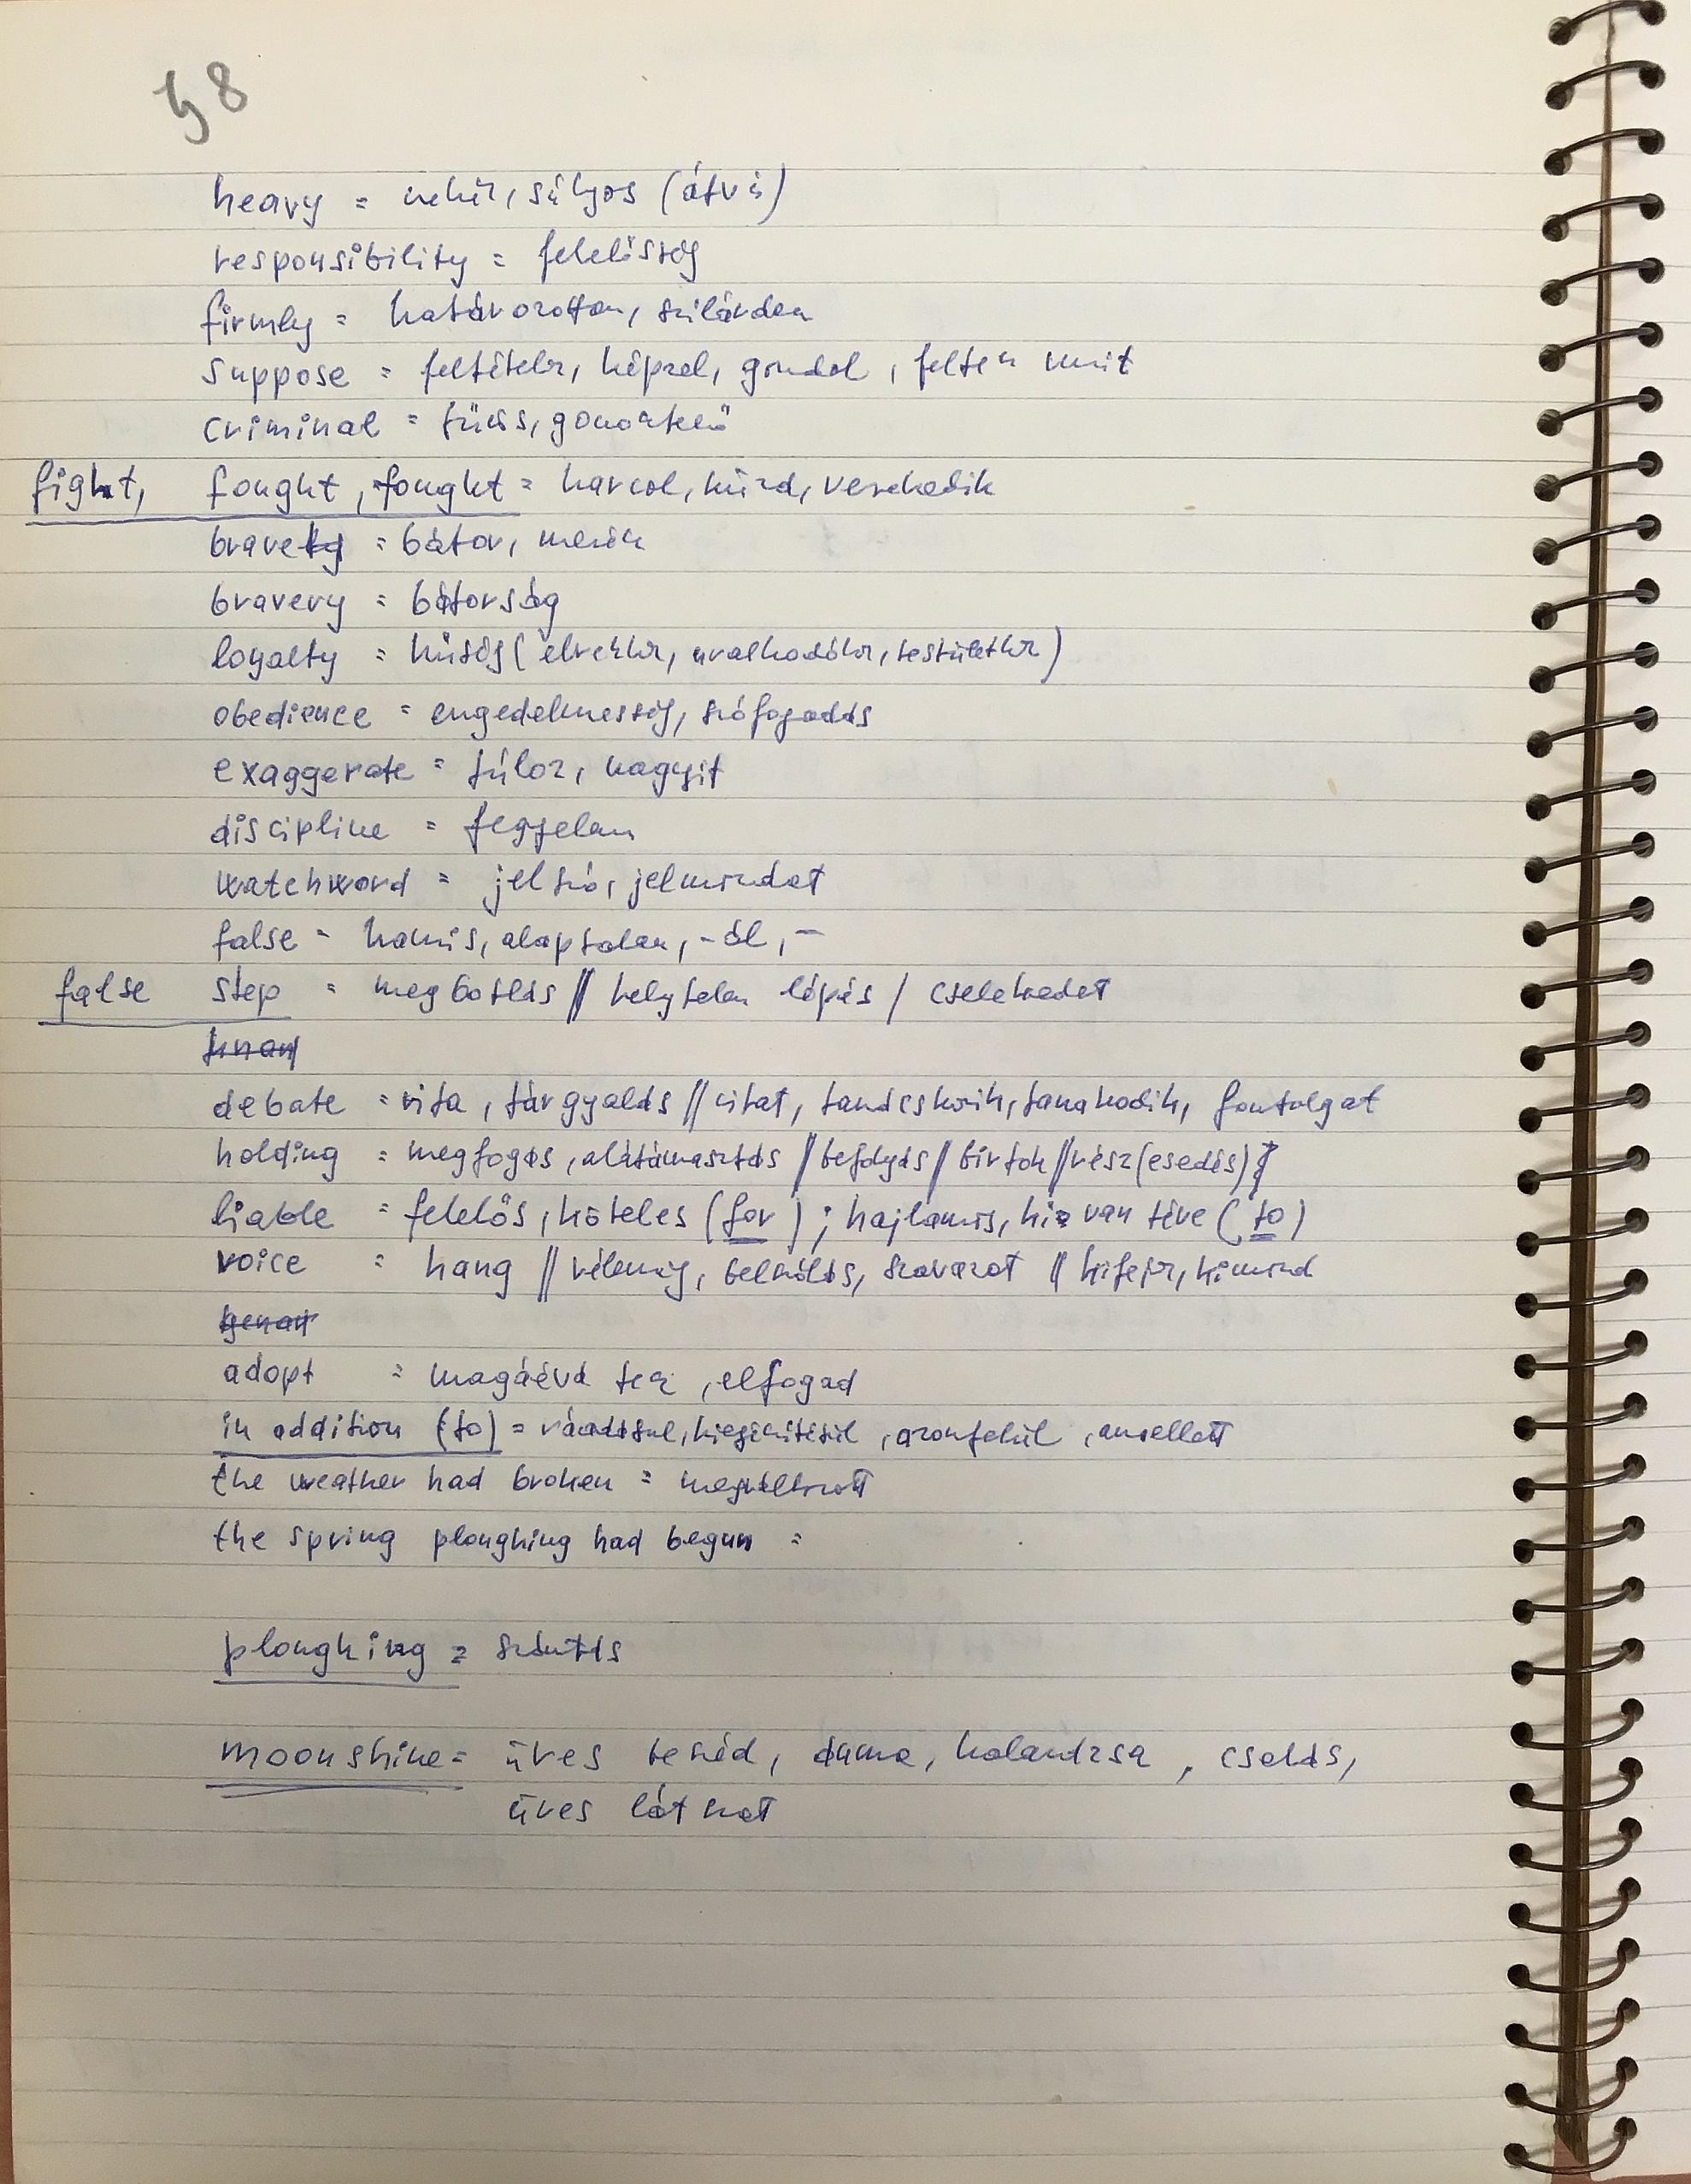 58
heavy = nehéz, súlyos (átv is)
responsibility = felelősség
firmly = határozottan, szilárdan
suppose = feltételez, képzel, gondol, feltesz vmit
criminal = bűnös, gonosztevő
fight, fought, fought = harcol, küzd, verekedik
brave = bátor, merész
bravery = bátorság
loyalty = hűség (elvekhez, uralkodóhoz, testülethez)
obedience = engedelmesség, szófogadás
exaggerate = túloz, nagyít
discipline = fegyelem
watchword = jelszó, jelmondat
false = hamis, alaptalan, -ál, -
false step = megbotlás // helytelen lépés / cselekedet
debate = vita, tárgyalás // vitat, tanácskozik, tanakodik, fontolgat
holding = megfogás, alátámasztás // befolyás // birtok // rész(esedés)
liable = felelős, köteles (for); hajlamos, ki van téve (to)
voice = hang // vélemény, beleszólás, szavazat // kifejez, kimond
adopt = magáévá tesz, elfogad
in addition (to) = ráadásul, kiegészítésül, azonfelül, amellett
the weather had broken = megváltozott
the spring ploughing had begun =
ploughing = szántás
moonshine = üres beszéd, duma, halandzsa, csalás,
üres látszat